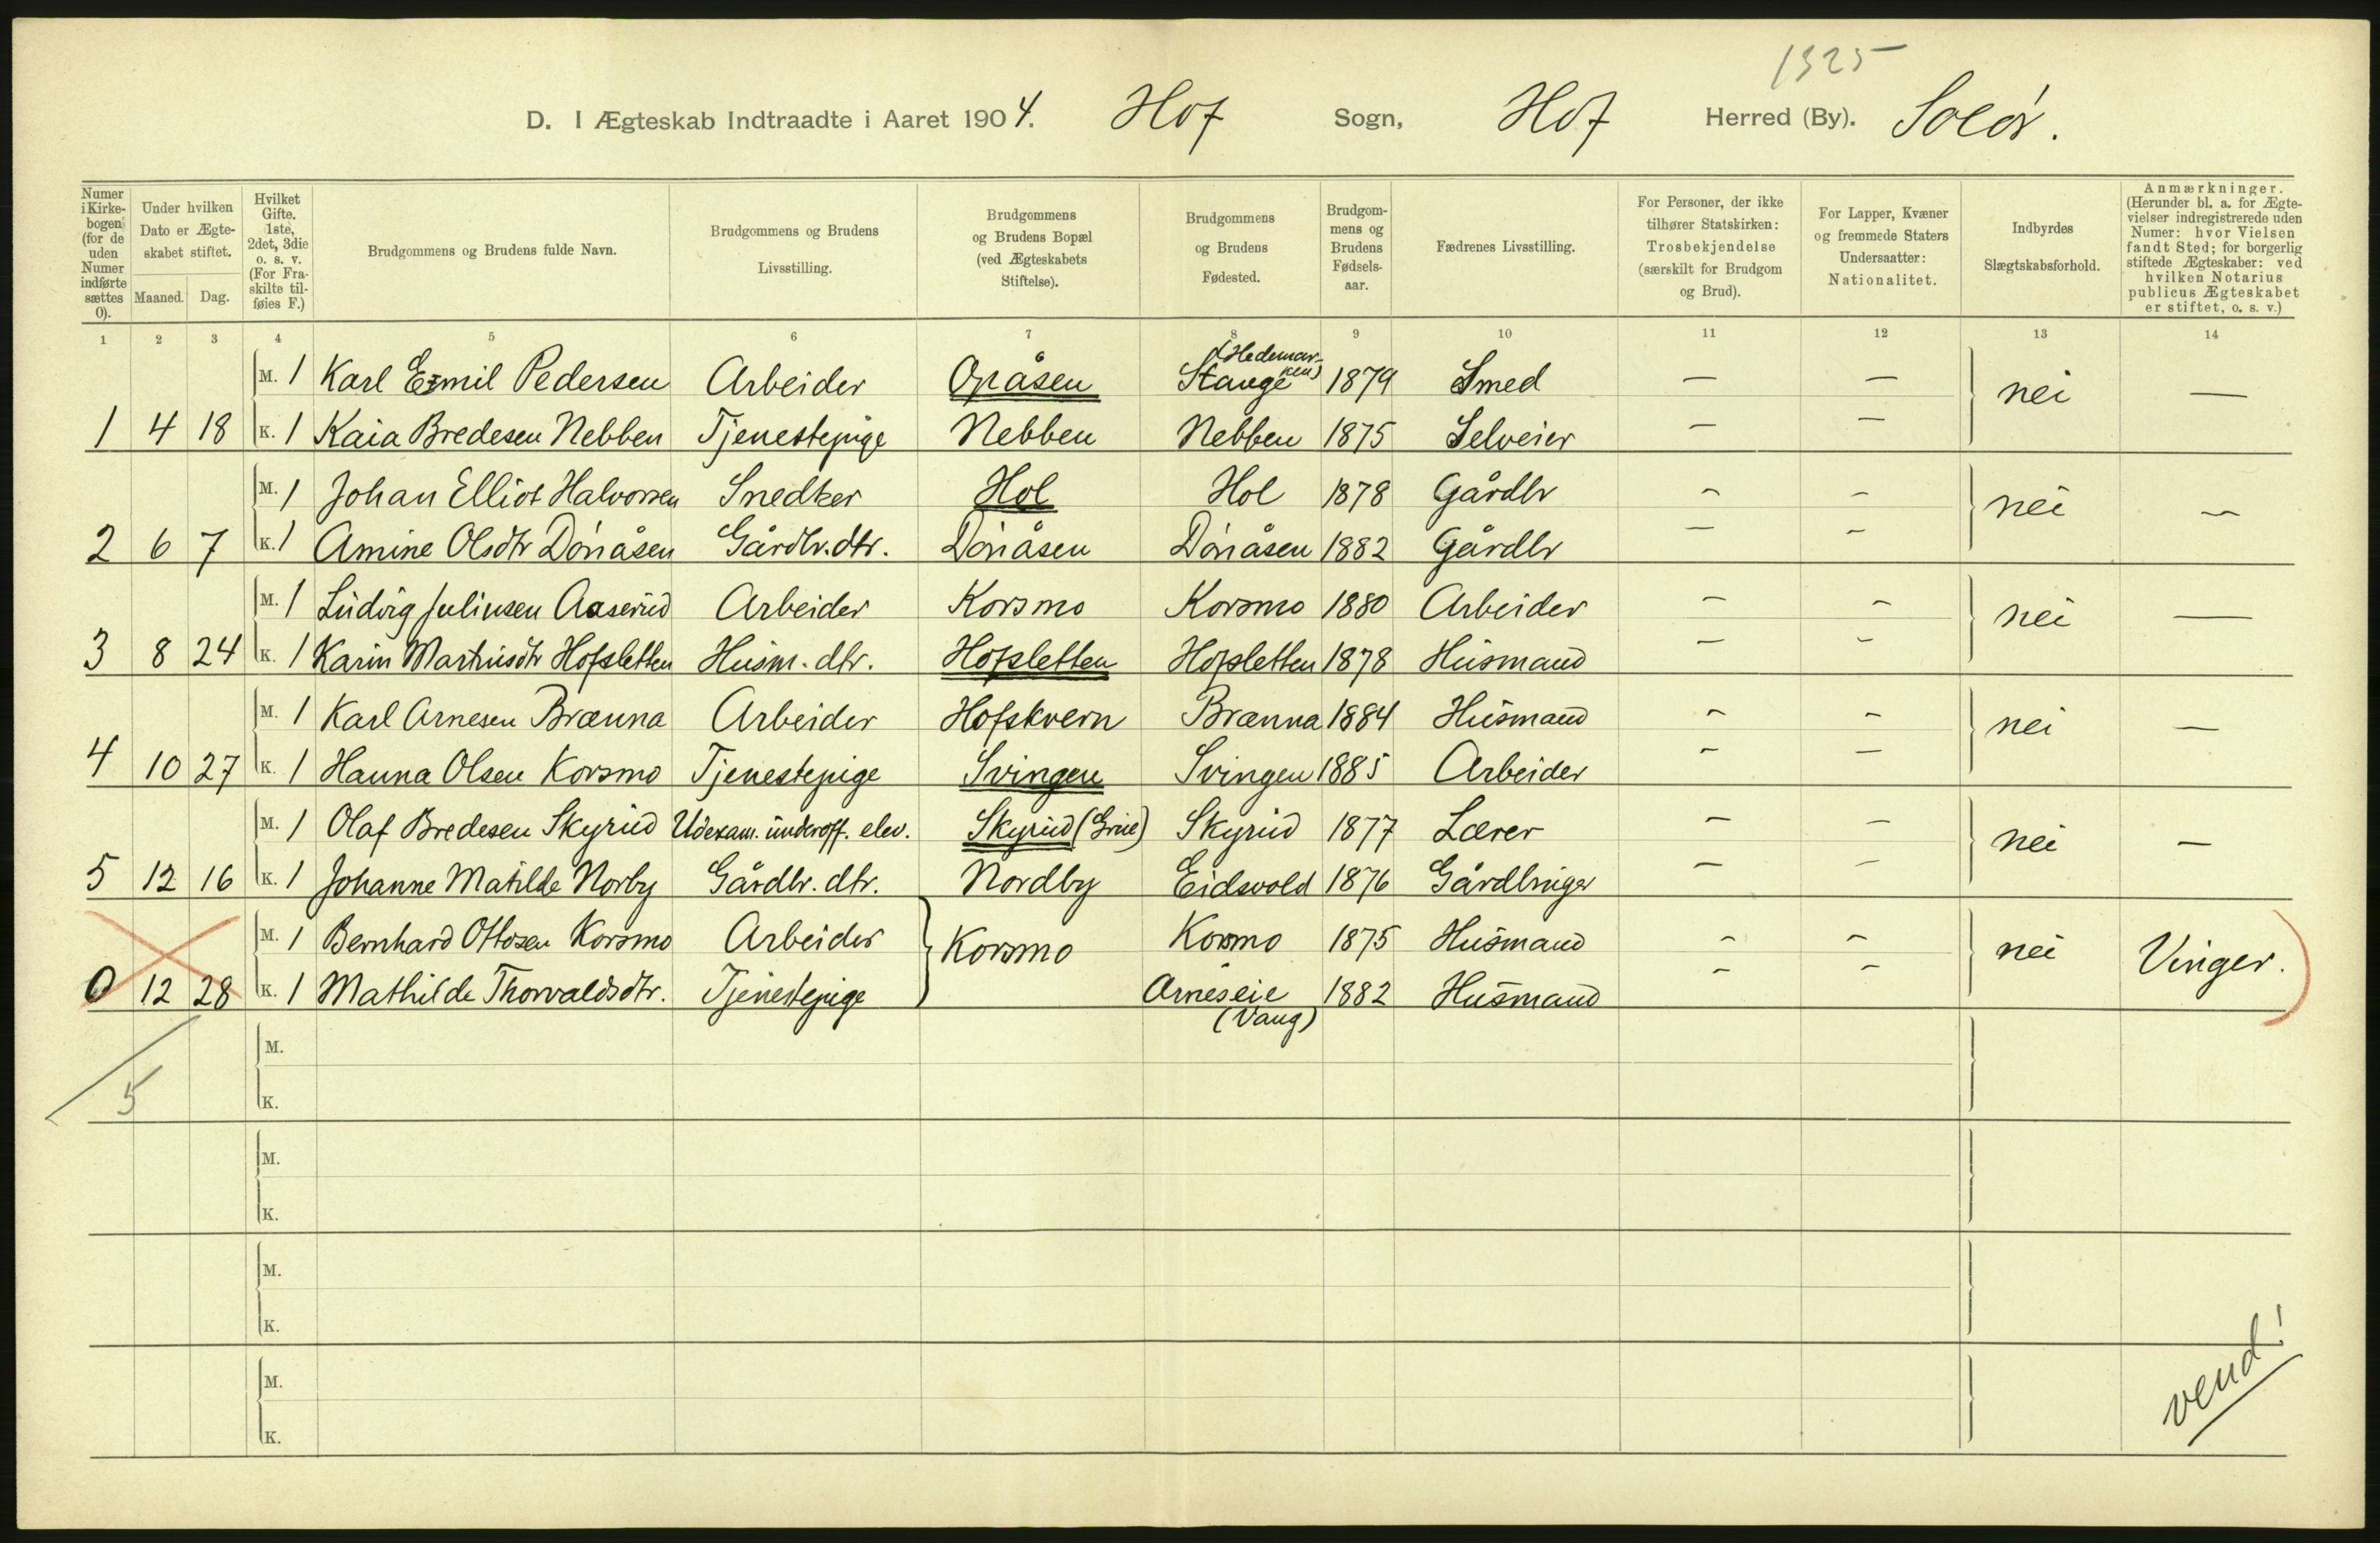 1325
D. I Ægteskab Indtraadte i Aaret 1904. Hof Sogn, Hof Herred (By). Solør.
Numer i Kirkebogen (for de uden Numer indførte sættes 0). Under hvilken Dato er Ægteskabet stiftet. Maaned. Dag. Hvilket Gifte. 1ste, 2det, 3die o. s. v. (For Fraskilte tilføies F.) Brudgommens og Brudens fulde Navn. Brudgommens og Brudens Livsstilling. Brudgommens og Brudens Bopæl (ved Ægteskabets Stiftelse). Brudgommens og Brudens Fødested. Brudgommens og Brudens Fødselsaar. Fædrenes Livsstilling. For Personer, der ikke tilhører Statskirken: Trosbekjendelse (særskilt for Brudgom og Brud). For Lapper, Kvæner og fremmede Staters Undersaatter: Nationalitet. Indbyrdes Slægtskabsforhold. Anmærkninger. (Herunder bl. a. for Ægtevielser indregistrerede uden Numer: hvor Vielsen fandt Sted; for borgerlig stiftede Ægteskaber: ved hvilken Notarius publicus Ægteskabet er stiftet, o. s. v.)
1 2 3 4 5 6 7 8 9 10 11 12 13 14
M. 1 Karl Emil Pedersen Arbeider Opåsen Stange (Hedemarken) 1879 Smed — — nei —
1 4 18 K. 1 Kaia Bredesen Nebben Tjenestepige Nebben Nebben 1875 Selveier — —
M. 1 Johan Elliot Halvorsen Snedker Hol Hol 1878 Gårdbr — — nei —
2 6 7 K. 1 Amine Olsdtr Dôriåsen Gårdbr. dtr. Dôriåsen Dôriåsen 1882 Gårdbr — —
M. 1 Ludvig Juliusen Aaserud Arbeider Korsmo Korsmo 1880 Arbeider — — nei —
3 8 24 K. 1 Karin Martinsdtr Hofsletten Husm. dtr. Hofsletten Hofsletten 1878 Husmand — —
M. 1 Karl Arnesen Brænna Arbeider Hofskvern Brænna 1884 Husmand — — nei —
4 10 27 K. 1 Hanna Olsen Korsmo Tjenestepige Svingen Svingen 1885 Arbeider — —
M. 1 Olaf Bredesen Skyrud Udexam. underoff. elev. Skyrud (Grue) Skyrud 1877 Lærer — — nei —
5 12 16 K. 1 Johanne Matilde Norby Gårdbr. dtr. Nordby Eidsvold 1876 Gårdbruger — —
M. 1 Bernhard Ottosen Korsmo Arbeider Korsmo Korsmo 1875 Husmand — — nei Vinger.
0 12 28 K. 1 Mathilde Thorvaldsdtr. Tjenestepige Arneseie (Vang) 1882 Husmand — —
M.
5 K.
M.
K.
M.
K.
M.
K.
vend!